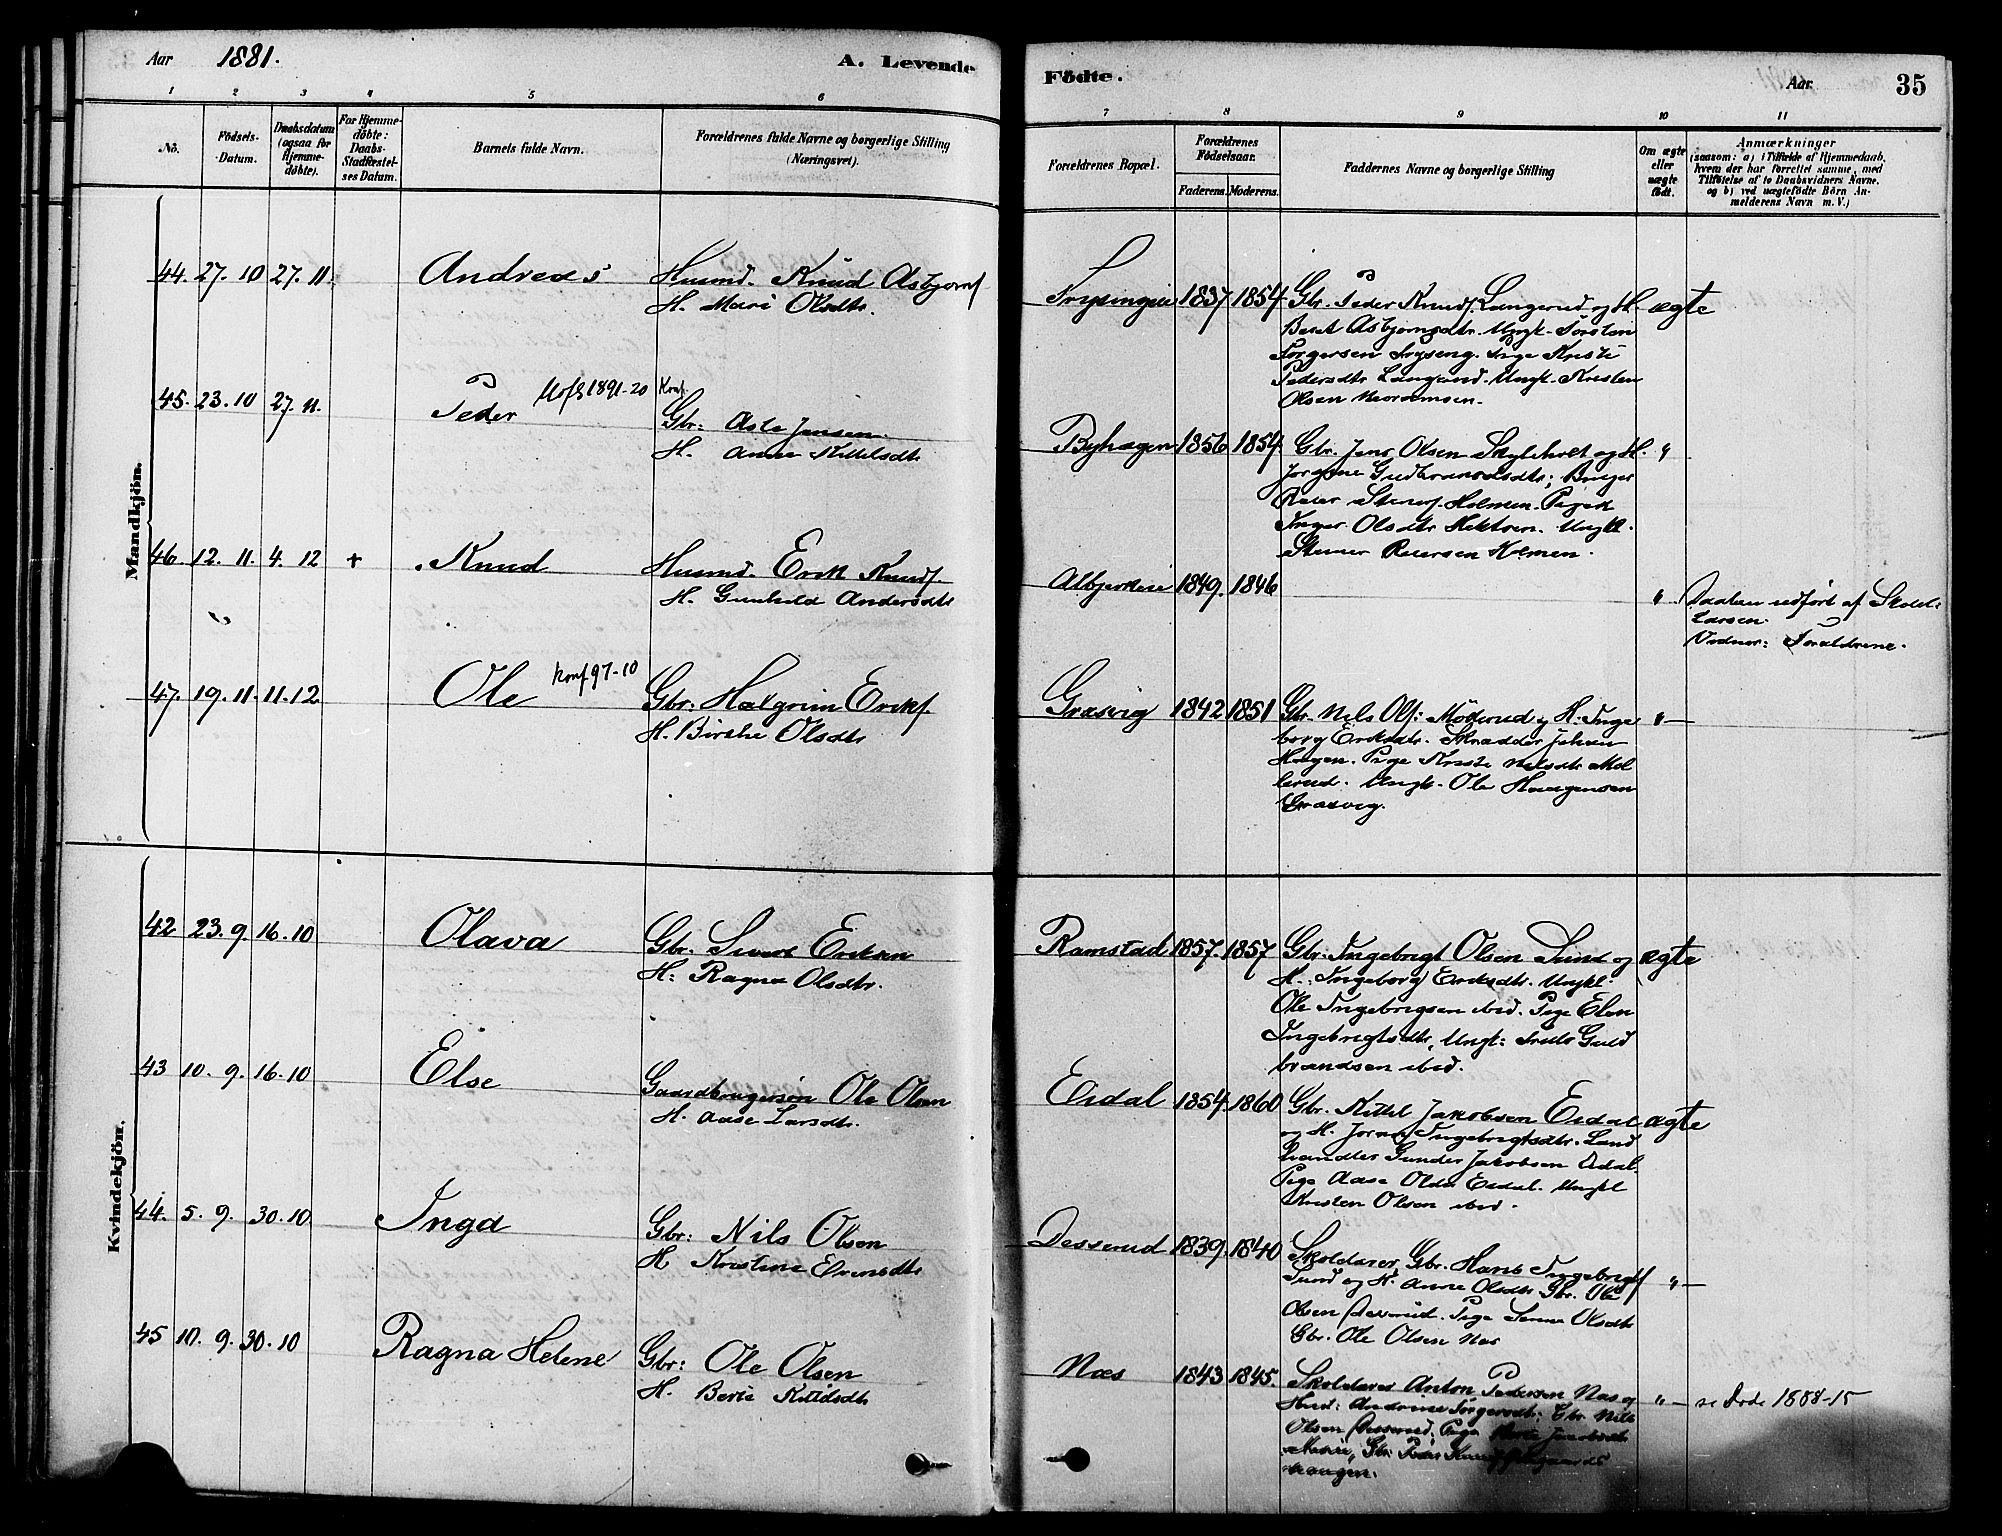 Aar 1881.
A. Levende
Födte.
Aar
35
1 2 3 4 5 6
7 8 9 10 11
No.
Födsels-
Datum.
Daabsdatum
(ogsaa for
Hjemme-
døbte).
For Hjemme-
døbte:
Daabs-
Stadfæstel-
ses Datum.
Barnets fulde Navn.
Forældrenes fulde Navne og borgerlige Stilling
(Næringsvei).
Forældrenes Bopæl.
Forældrenes
Födselsaar.
Faderens. Moderens.
Faddernes Navne og borgerlige Stilling
Om ægte
eller
uægte
födt.
Anmærkninger
(saasom: a) i Tilfælde af Hjemmedaab,
hvem der har forrettet samme, med
Tilføielse af to Daabsvidners Navne,
og b) ved uægtefødte Börn An-
melderens Navn m. V.)
Mandkjön.
44. 27. 10 27. 11. Andreas Husmd. Knud Asbjørns
H. Mari Olsdtr.
1837 1854 Gbr. Peder Knuds. Langerud og H. ægte
Berit Asbjørnsdtr. Ungk. Torsten
Torgersen Pige Kristi
Pedersdtr Langerud. Ungk. Kristen
Olsen
45. 23. 10 27. 11. Peder 1891-20 Konf.
Gbr: Asle Jensen
H. Anne Kittelsdtr
Byhagen 1856 1854 Gbr. Jens Olsen og H. "
Jørgine Gudbrandsdtr;
Holmen. Pige
Inger Olsdtr Ungkl.
Stener Reiersen Holmen.
46. 12. 11. 4. 12 + Knud Husmd. Erik Knuds.
H. Gunhild Andersdtr
1849. 1846 " Daaben udført af Skoleh.
Larsen.
Vidner: Foraldrene.
47. 19. 11. 11. 12 Ole Konf 97-10 Gbr: Halgrim Eriks.
H. Birthe Olsdtr
Grasvig 1842 1851 Gbr. Nils Ols: Möderud og H. Inge "
borg Eriksdtr. Skradder Johan
Hagen. Pige Kristi Nilsdtr Mö
derud. Ungk. Ole Haagensen
Grasvig.
Kvindekjön.
42 23. 9. 16. 10 Olava Gbr. Sivert Eriksen
H: Ragna Olsdtr.
Ramstad 1857. 1857 Gbr. Ingebrigt Olsen Sund og ægte
H. Ingeborg Eriksdtr. Ungkl.
Ole Ingebrigtsen ibid. Pige Elen
Ingebrigtsdtr, Ungk: Truls Guld
brandsen ibid.
43 10. 9. 16. 10 Else Gaardbrugersøn Ole Olsen
H. Aase Larsdtr.
Eidal 1854 1860 Gbr. Kittil Jakobsen Eidal ægte
og H. Joran Ingebrigtsdtr. Land
handler Gunder Jakobsen Eidal
Pige Aase Olsdtr Eidal. Ungkl
Kristen Olsen ibid.
44. 5. 9. 30. 10 Inga Gbr: Nils Olsen
H Kristine Evensdtr
Desserud 1839. 1840 Skolelærer, Gbr. Hans Ingebrigts
Sund og H. Anne Olsdtr Gbr. Ole "
Olsen Desserud. Pige Olsdtr
Gbr. Ole Olsen Næs
45 10. 9. 30. 10 Ragna Helene Gbr: Ole Olsen
H. Berte Kittilsdtr
Næs 1843 1845. Skolelærer Anton Pedersen Næs og " se Døde 1888-15
Hust: Andrine Torgersdtr: Gbr. Nils
Olsen Desserud, Pige
Gbr: Peder
haugen.